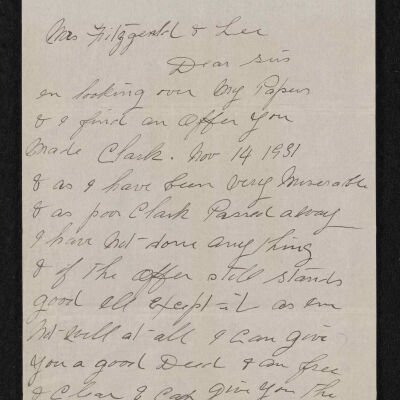 Mrs Fitzgerald & Lee
Dear sirs
en looking over My Papers
& I find an offer you
Made Clark. Nov 14 1931
& as I have been Very Miserable
& as poor Clark Passed away
I have Not done anything
& if The offer still stands
good ell Except it as em
Not well at all I Can give
you a good Deed & am free
& Clear & Can give you The